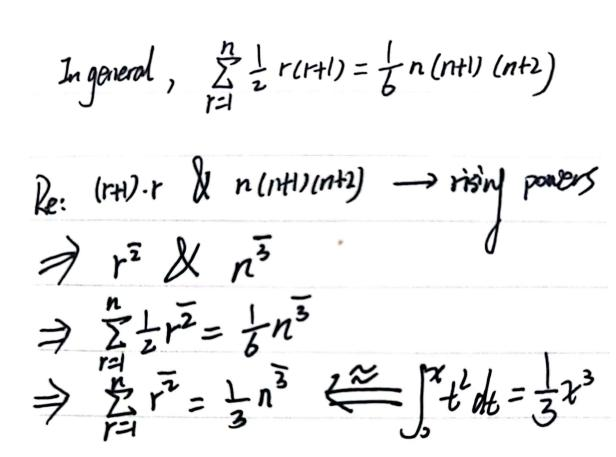 In general, $\sum_{r=1}^{n} \frac{1}{2} r(r+1) = \frac{1}{6} n(n+1)(n+2)$
Re: (r+1)·r & n(n+1)(n+2) → rising powers
⇒ $r^{\overline{2}}$ & $n^{\overline{3}}$
⇒ $\sum_{r=1}^{n} \frac{1}{2} r^{\overline{2}} = \frac{1}{6} n^{\overline{3}}$
⇒ $\sum_{r=1}^{n} r^{\overline{2}} = \frac{1}{3} n^{\overline{3}}$ $\overset{? \approx}{\Longleftarrow}$ $\int_{0}^{x} t^2 dt = \frac{1}{3} x^3$